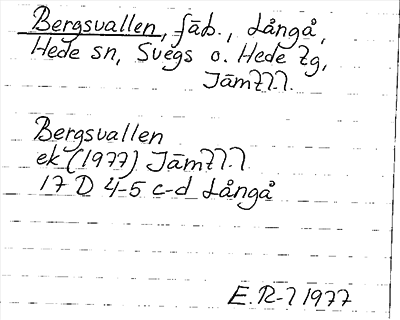 Bergsvallen, fäb., Långå,
Hede sn, Svegs o. Hede tg,
Jämtl.
Bergsvallen
ek (1977) Jämtl.
17 D 4-5 c-d Långå
E. R-l 1977